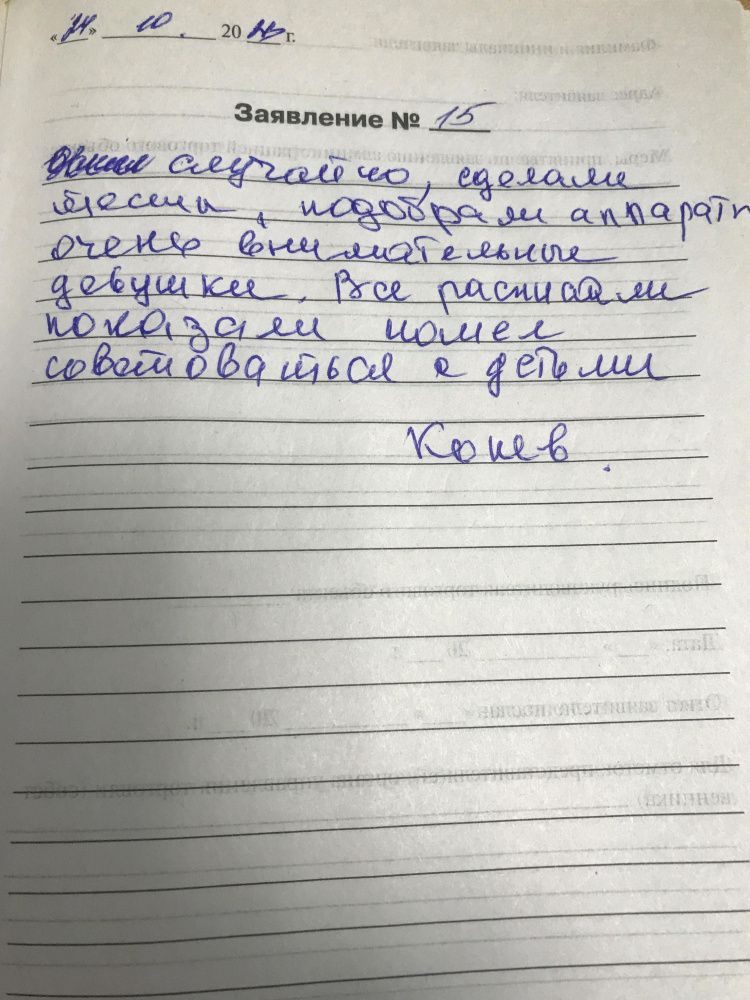 « » 10. 20 г.
Заявление № 15
случайно, сделали
тесты, подобрали аппарат
очень внимательные
девушки. Все расписали
показали пошел
советоваться с детьми
Конев.